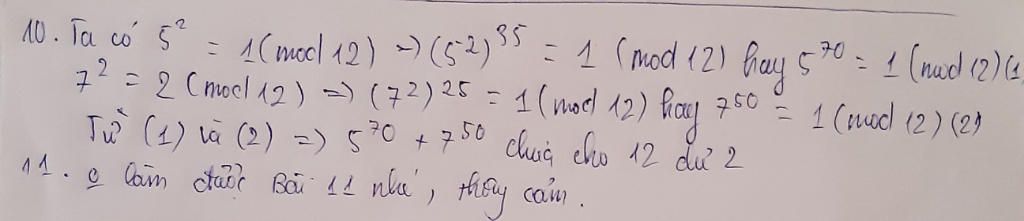 10. Ta có 5² = 1 (mod 12) => (5²)³⁵ = 1 (mod 12) hay 5⁷⁰ = 1 (mod 12) (1
7² = 2 (mod 12) => (7²)²⁵ = 1 (mod 12) hay 7⁵⁰ = 1 (mod 12) (2)
Từ (1) và (2) => 5⁷⁰ + 7⁵⁰ chia cho 12 dư 2
11. 0 làm được Bài 11 nhé, thầy cảm.